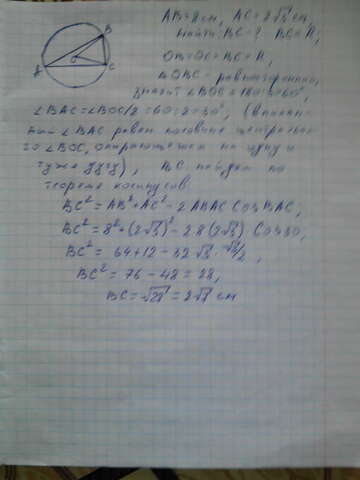 B
O
A
C
AB=8см, AC=2√3 см.
Найти: BC=? BC=R,
OB=OC=BC=R,
△OBC - равносторонний,
значит ∠BOC=180:3=60°,
∠BAC=∠BOC/2=60:2=30°, (вписан-
ный ∠BAC равен половине центрально-
го ∠BOC, опирающемся на одну и
ту же дугу), BC найдём по
теореме косинусов
BC²=AB²+AC²-2 AB AC Cos BAC,
BC²=8²+(2√3)²-2·8(2√3) Cos30,
BC²=64+12-32√3·√3/2,
BC²=76-48=28,
BC=√28=2√7 см